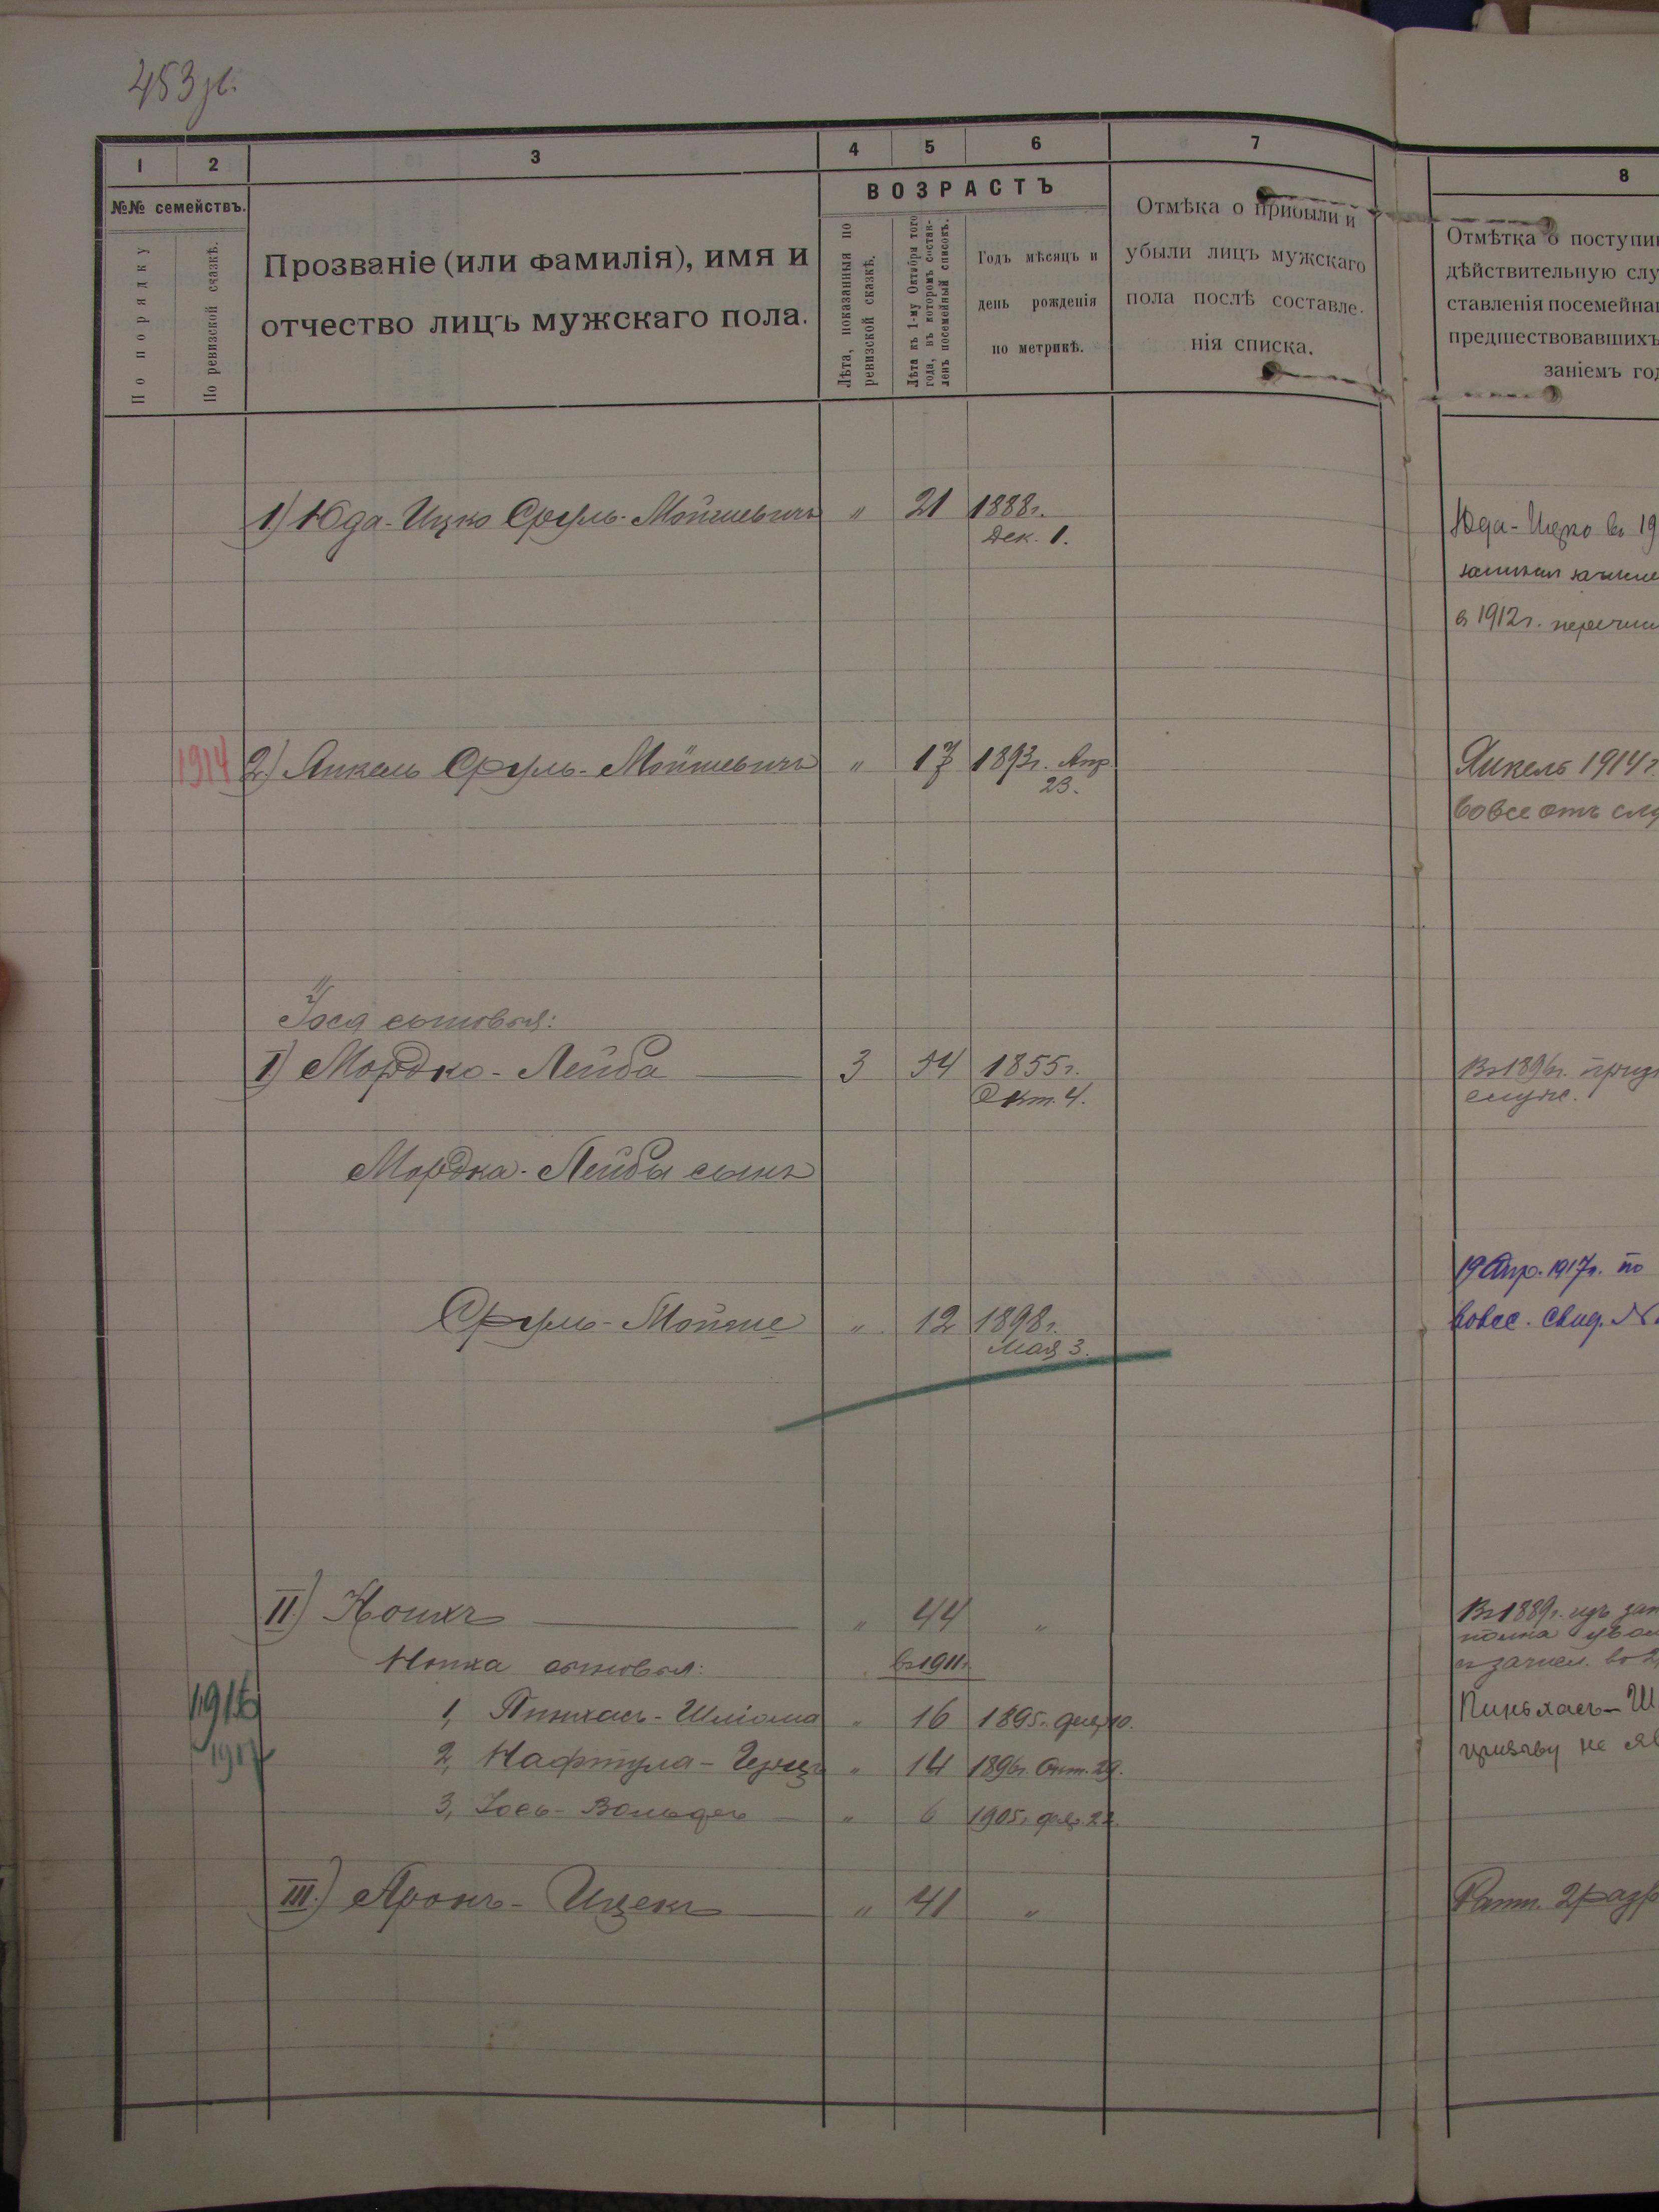 453
1 2 3 4 5 6 7 8
№№ семействъ.
По порядку
По ревизской сказкѣ.
Прозваніе (или фамилія), имя и
отчество лицъ мужскаго пола.
ВОЗРАСТЪ
Лѣта, показанныя по
ревизской сказкѣ.
Лѣта къ 1-му Октября того
года, въ которомъ состав-
ленъ посемейный списокъ.
Годъ мѣсяцъ и
день рожденія
по метрикѣ.
Отмѣка о прибыли и
убыли лицъ мужскаго
пола послѣ составле-
нія списка.
Отмѣтка о поступи
дѣйствительную слу
ставленія посемейна
предшествовавшихъ
заніемъ год
1) Юда-Ицко Сруль-Мойшевичъ " 21 1888г.
Дек. 1.
Юда-Ицко въ 19
в 1912г. перечи
1914 2) Янкель Сруль-Мойшевичъ " 17 1893г. Апр.
23.
Янкель 1914г.
вовсе отъ слу
Іося сыновья:
I) Мордко-Лейба 3 54 1855г.
Окт. 4.
Въ 1896г. приз
служ.
Мордка-Лейбы сынъ
Сруль-Мойше " 12 1898г.
Мая 3.
19 Апр. 1917г. по
вовсе. Свид. №
II) Нонхъ " 44 "
Въ 1889г. изъ зап
полка увол
и зачисл. во 2
Нонха сыновья: въ 1911г.
1916 1, Пинхасъ-Шліома " 16 1895г. 10.
Пинхасъ-Ш
призыву не яв
1917 2, Нафтула-Герцъ " 14 1896г. Окт. 29.
3, Іось-Вольфъ " 6 1905г. 22.
III.) Аронъ-Ицекъ " 41 "
Ратн. 2 разр